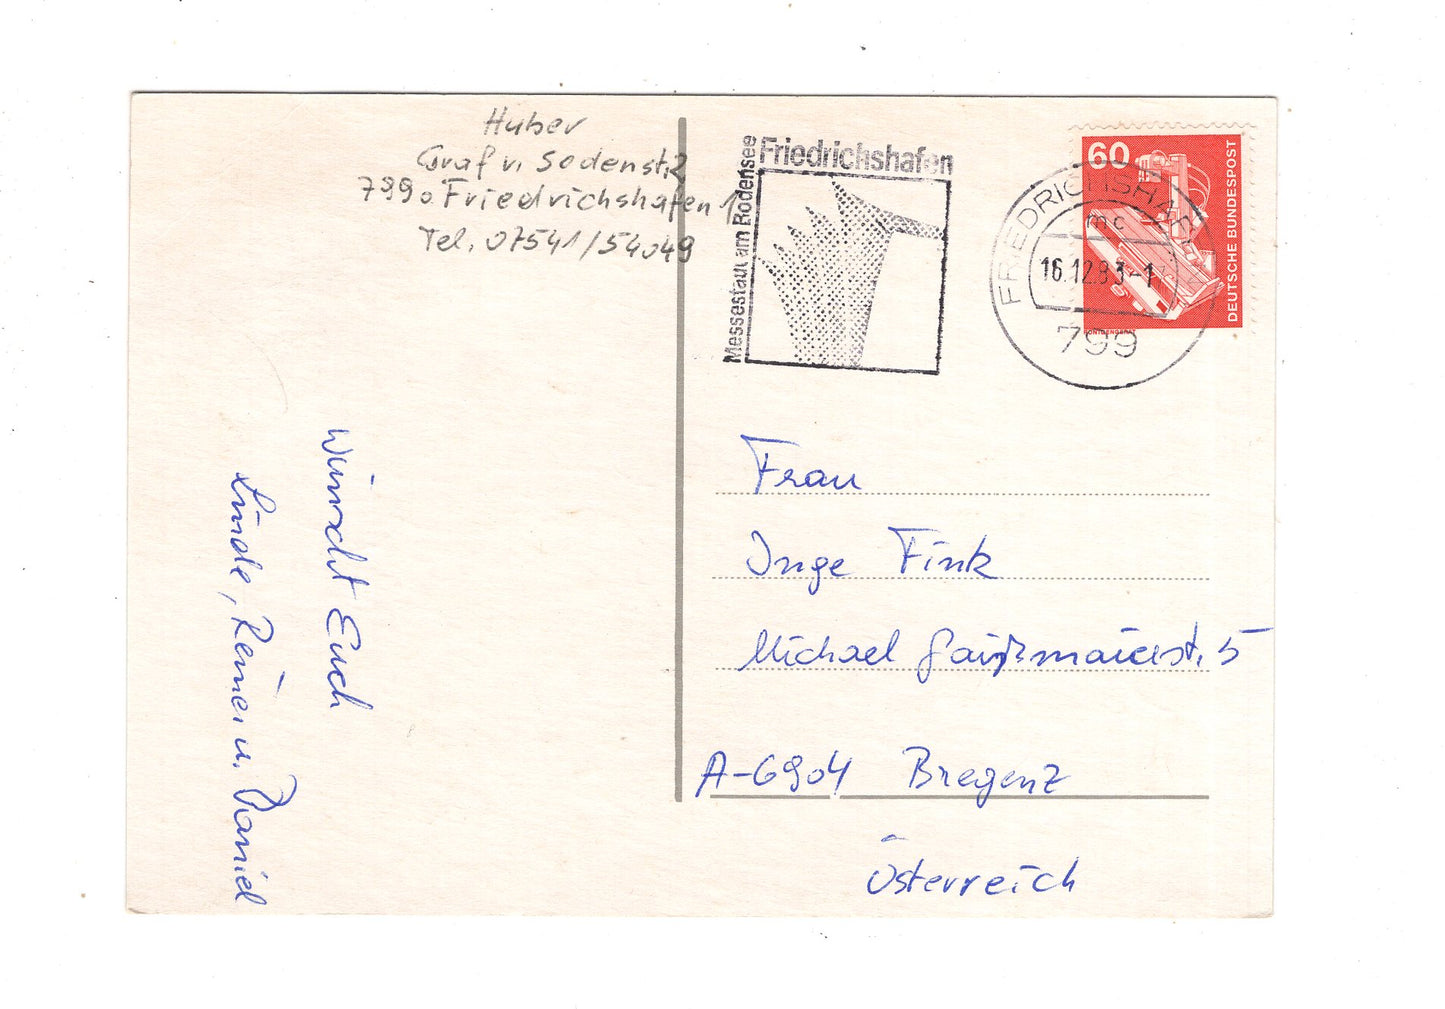 Huber
Graf v. Sodenstr. 2
7990 Friedrichshafen 1
Tel. 07541/54049
Friedrichshafen
Messestadt am Bodensee
FRIEDRICHSHAFEN
mc
16.12.83-1
799
60
DEUTSCHE BUNDESPOST
Wünscht Euch
Linde, Reiner u. Daniel
Frau
Inge Fink
Michael Gaißmairst. 5
A-6904 Bregenz
Österreich